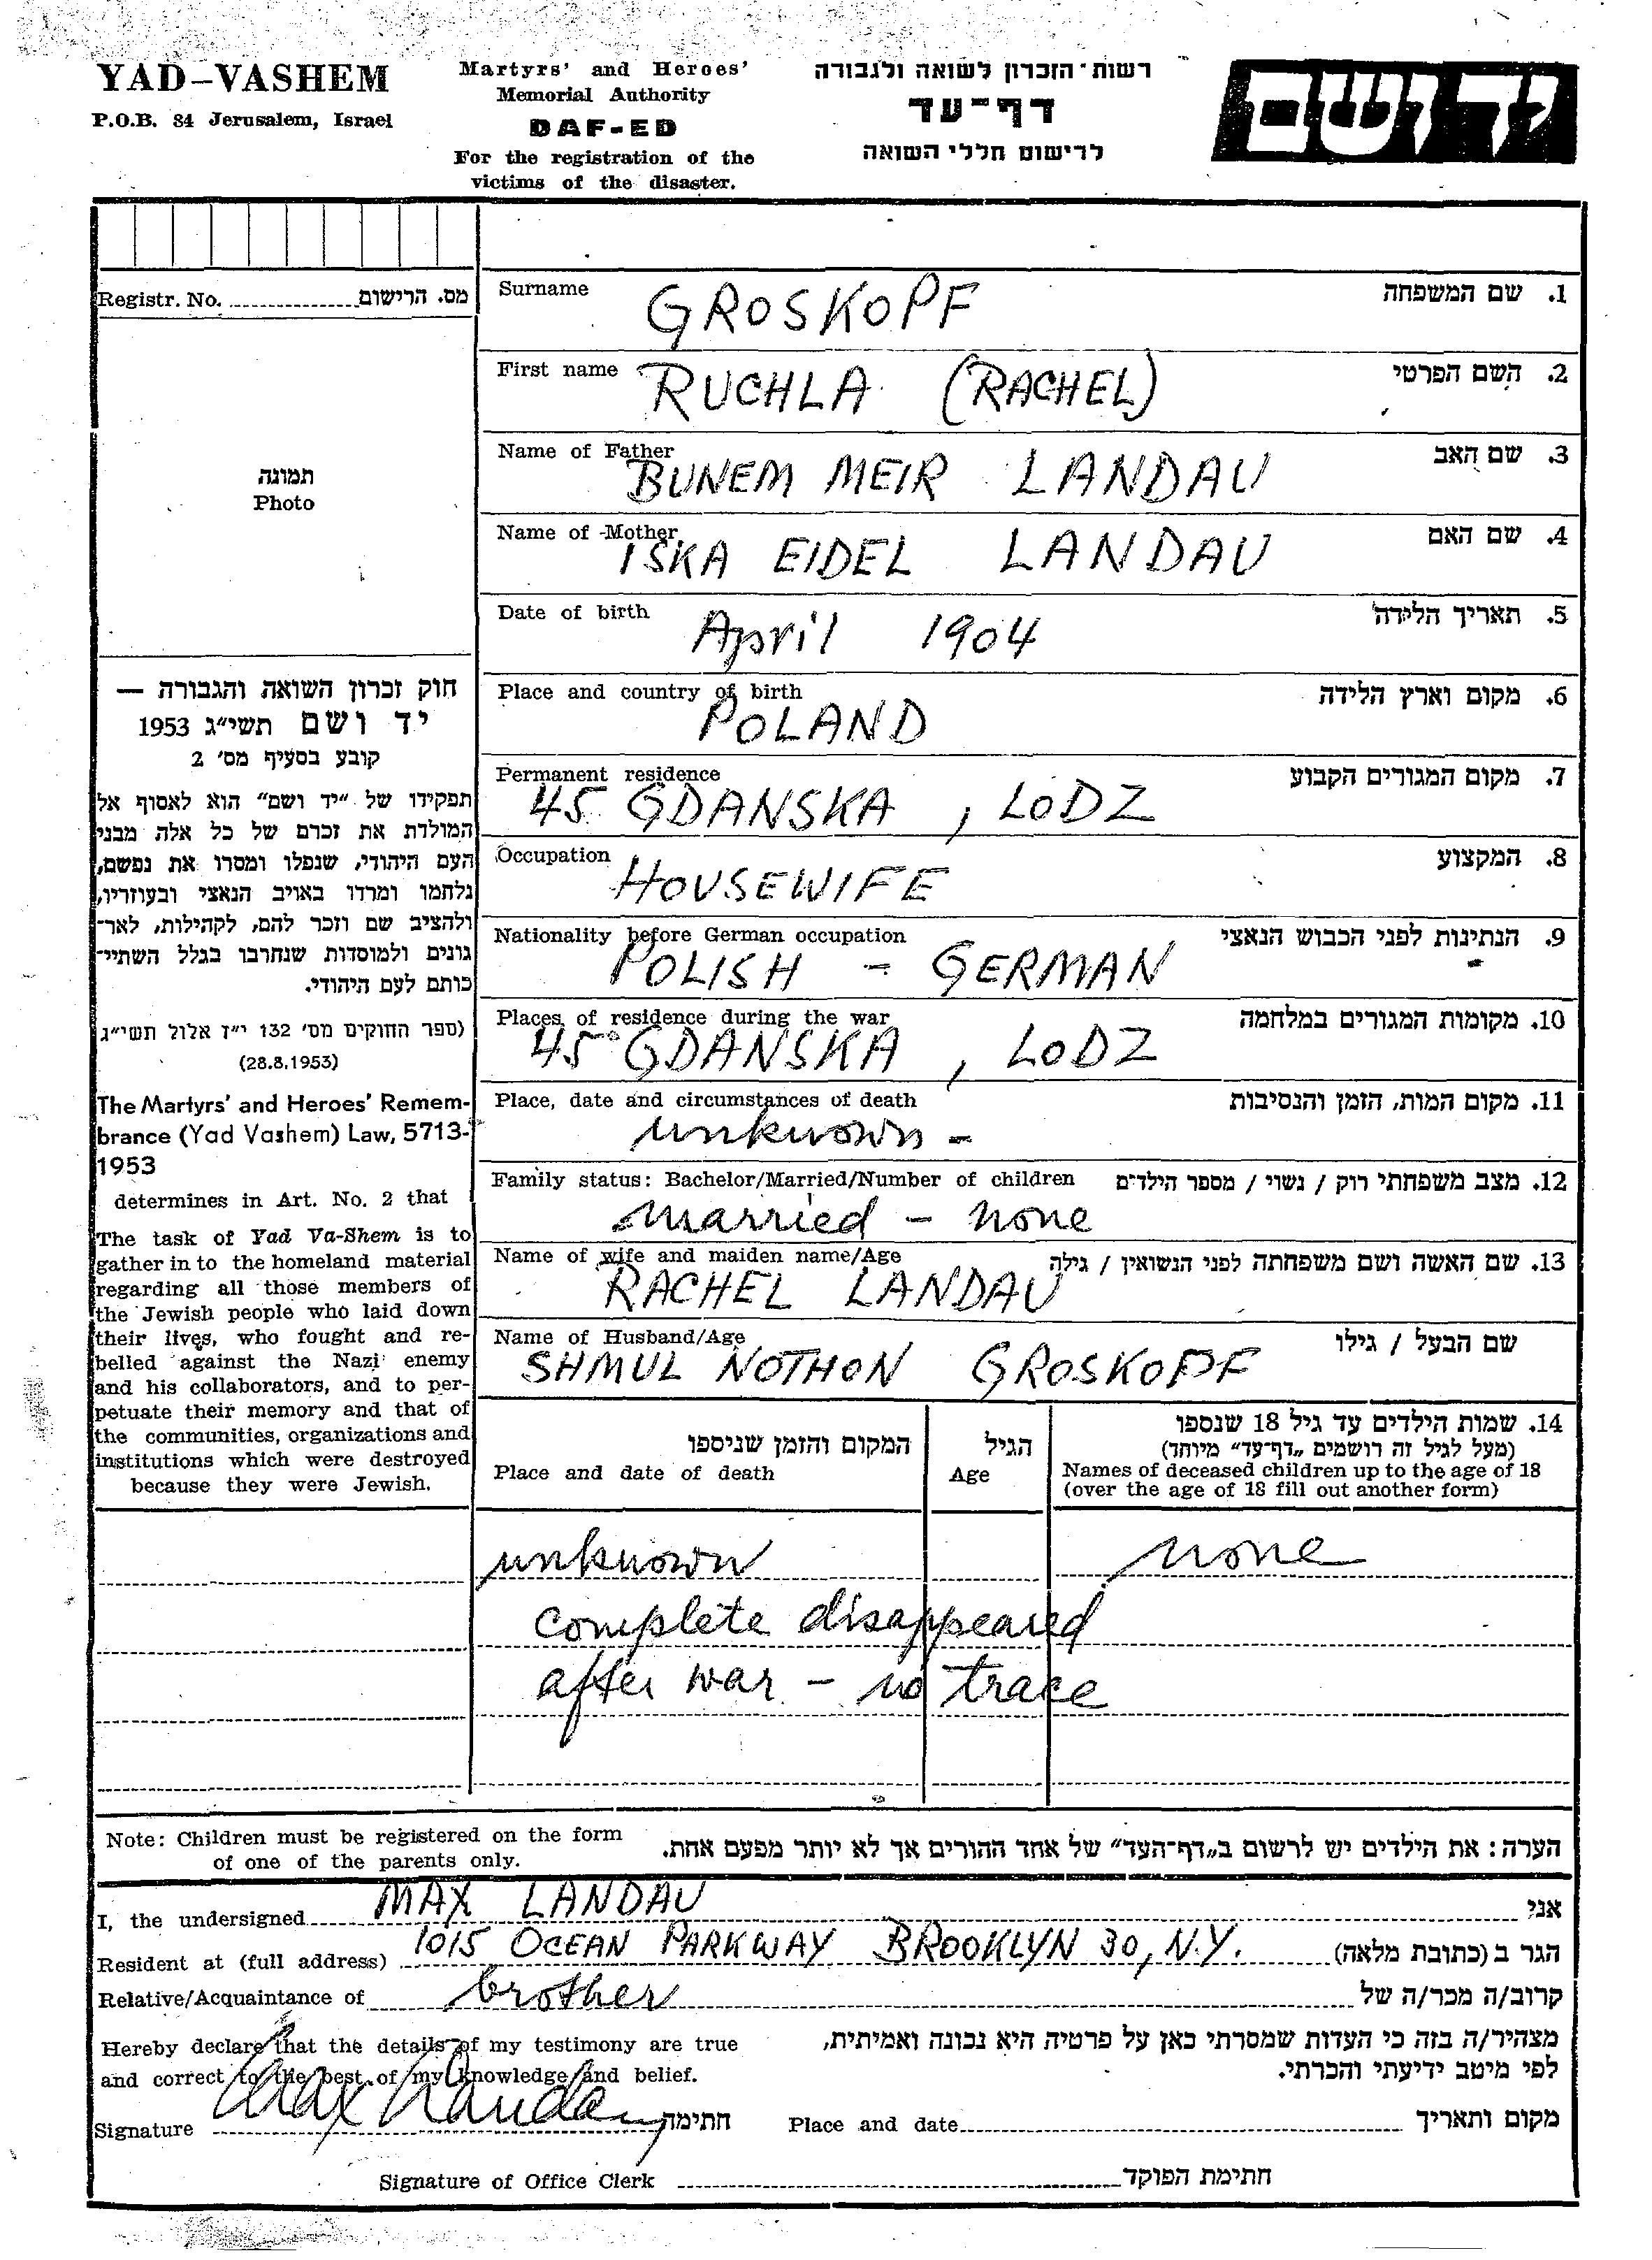 YAD-VASHEM
P.O.B. 84 Jerusalem, Israel
Martyrs' and Heroes'
Memorial Authority
DAF-ED
For the registration of the
victims of the disaster.
רשות־הזכרון לשואה ולגבורה
דף־עד
לרישום חללי השואה
יד ושם
Registr. No. מס. הרישום
תמונה
Photo
חוק זכרון השואה והגבורה —
יד ושם תשי״ג 1953
קובע בסעיף מס׳ 2
תפקידו של ״יד ושם״ הוא לאסוף אל
המולדת את זכרם של כל אלה מבני
העם היהודי, שנפלו ומסרו את נפשם,
נלחמו ומרדו באויב הנאצי ובעוזריו,
ולהציב שם וזכר להם, לקהילות, לאר־
גונים ולמוסדות שנחרבו בגלל השתיי־
כותם לעם היהודי.
(ספר החוקים מס׳ 132 י״ז אלול תשי״ג
(28.8.1953)
The Martyrs' and Heroes' Remem-
brance (Yad Vashem) Law, 5713-
1953
determines in Art. No. 2 that
The task of Yad Va-Shem is to
gather in to the homeland material
regarding all those members of
the Jewish people who laid down
their lives, who fought and re-
belled against the Nazi enemy
and his collaborators, and to per-
petuate their memory and that of
the communities, organizations and
institutions which were destroyed
because they were Jewish.
Surname 1. שם המשפחה
GROSKOPF
First name 2. השם הפרטי
RUCHLA (RACHEL)
Name of Father 3. שם האב
BUNEM MEIR LANDAU
Name of Mother 4. שם האם
ISKA EIDEL LANDAU
Date of birth 5. תאריך הלידה
April 1904
Place and country of birth 6. מקום וארץ הלידה
POLAND
Permanent residence 7. מקום המגורים הקבוע
45 GDANSKA, LODZ
Occupation 8. המקצוע
HOUSEWIFE
Nationality before German occupation 9. הנתינות לפני הכבוש הנאצי
POLISH - GERMAN
Places of residence during the war 10. מקומות המגורים במלחמה
45 GDANSKA, LODZ
Place, date and circumstances of death 11. מקום המות, הזמן והנסיבות
unknown -
Family status: Bachelor/Married/Number of children 12. מצב משפחתי רוק / נשוי / מספר הילדים
married - none
Name of wife and maiden name/Age 13. שם האשה ושם משפחתה לפני הנשואין / גילה
RACHEL LANDAU
Name of Husband/Age שם הבעל / גילו
SHMUL NOTHON GROSKOPF
14. שמות הילדים עד גיל 18 שנספו
(מעל לגיל זה רושמים „דף־עד״ מיוחד)
Names of deceased children up to the age of 18
(over the age of 18 fill out another form)
הגיל
Age
המקום והזמן שניספו
Place and date of death
unknown none
complete disappeared
after war - no trace
Note: Children must be registered on the form
of one of the parents only.
הערה: את הילדים יש לרשום ב„דף־העד״ של אחד ההורים אך לא יותר מפעם אחת.
I, the undersigned MAX LANDAU אני
Resident at (full address) 1015 OCEAN PARKWAY BROOKLYN 30, N.Y. הגר ב (כתובת מלאה)
Relative/Acquaintance of brother קרוב/ה מכר/ה של
Hereby declare that the details of my testimony are true
and correct to the best of my knowledge and belief.
מצהיר/ה בזה כי העדות שמסרתי כאן על פרטיה היא נכונה ואמיתית,
לפי מיטב ידיעתי והכרתי.
Signature Max Landau חתימה Place and date מקום ותאריך
Signature of Office Clerk חתימת הפוקד